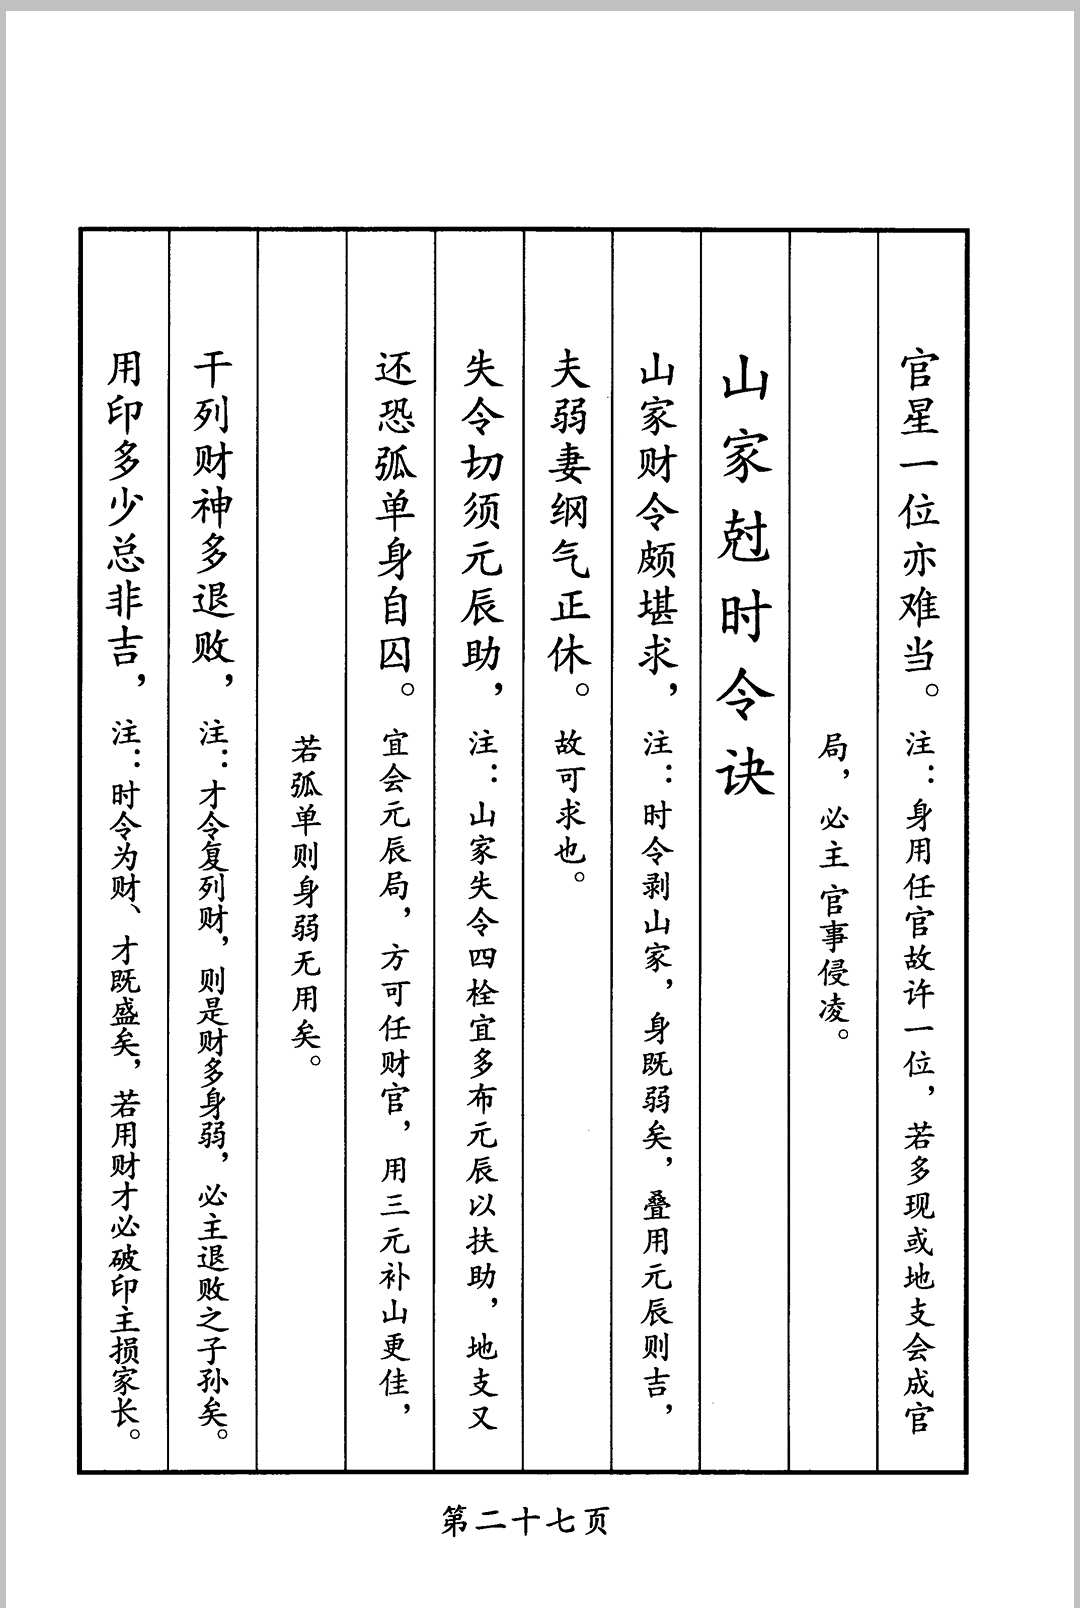 官星一位亦难当。注：身用任官故许一位，若多现或地支会成官
局，必主官事侵凌。
山家尅时令诀
山家财令颇堪求，注：时令剥山家，身既弱矣，叠用元辰则吉，
夫弱妻纲气正休。故可求也。
失令切须元辰助，注：山家失令四栓宜多布元辰以扶助，地支又
还恐孤单身自囚。宜会元辰局，方可任财官，用三元补山更佳，
若孤单则身弱无用矣。
干列财神多退败，注：才令复列财，则是财多身弱，必主退败之子孙矣。
用印多少总非吉，注：时令为财、才既盛矣，若用财才必破印主损家长。
第二十七页